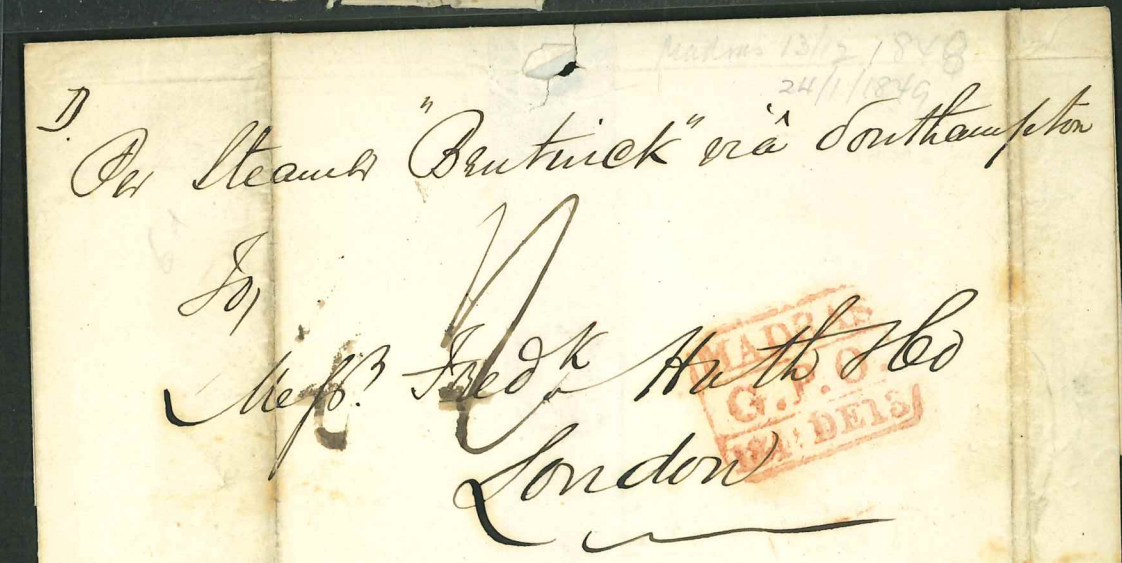 Madras 13/12 1848
24/1/1849
D.
Per Steamer "Bentinck" viâ Southampton
To,
Messrs. Fredk Huth & Co
London
MADRAS
G.P.O.
DE13